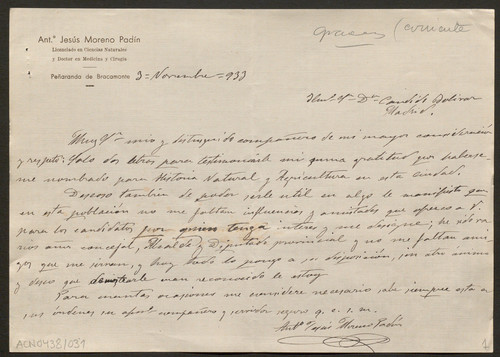 Ant.º Jesús Moreno Padín
Licenciado en Ciencias Naturales
y Doctor en Medicina y Cirugía
Peñaranda de Bracamonte 3 - Noviembre - 933
gracias
Ilmo. Sr. Dn. Candido Bolivar
Madrid.
Muy Sr. mio y distinguido compañero de mi mayor consideración
y respeto: Solo dos letras para testimoniarle mi suma gratitud por haberse
me nombrado para Historia Natural y Agricultura en esta ciudad.
Deseoso tambien de poder serle util en algo le manifiesto que
en esta población no me faltan influencias y amistades que ofrezco a V.
para los candidatos por quien tenga interes y me designe; he sido va
rios años concejal, Alcalde y Diputado provincial y no me faltan ami
gos que me sirvan y hoy todo lo pongo a su disposición, sin otro animo
y deseo que demostrarle mi reconocido
Para cuantas ocasiones me considere necesario sabe siempre esta a
sus órdenes su afmo. compañero y servidor seguro q. e. s. m.
Antº Jesús Moreno Padín
ACN0438/031
1